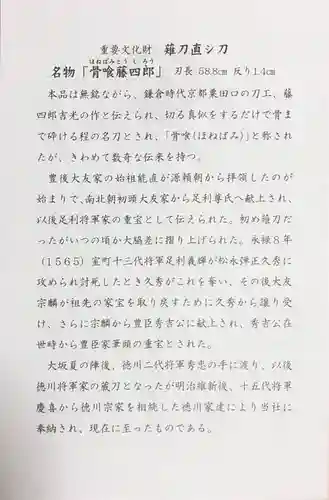 重要文化財　薙刀直シ刀
ほねばみとうしろう
名物「骨喰藤四郎」　刃長 58.8㎝ 反り1.4㎝
本品は無銘ながら、鎌倉時代京都粟田口の刀工、藤
四郎吉光の作と伝えられ、切る真似をするだけで骨ま
で砕ける程の名刀とされ、「骨喰(ほねばみ)」と称され
たが、きわめて数奇な伝来を持つ。
豊後大友家の始祖能直が源頼朝から拝領したのが
始まりで､南北朝初頭大友家から足利尊氏へ献上され､
以後足利将軍家の重宝として伝えられた。初め薙刀だ
ったがいつの頃か大脇差に摺り上げられた。永禄８年
（1565）室町十三代将軍足利義輝が松永弾正久秀に
攻められ討死したとき久秀がこれを奪い、その後大友
宗麟が祖先の家宝を取り戻すために久秀から譲り受
け、さらに宗麟から豊臣秀吉公に献上され、秀吉公在
世時から豊臣家筆頭の重宝とされた。
大坂夏の陣後、徳川二代将軍秀忠の手に渡り、以後
徳川将軍家の蔵刀となったが明治維新後、十五代将軍
慶喜から徳川宗家を相続した徳川家達により当社に
奉納され、現在に至ったものである。